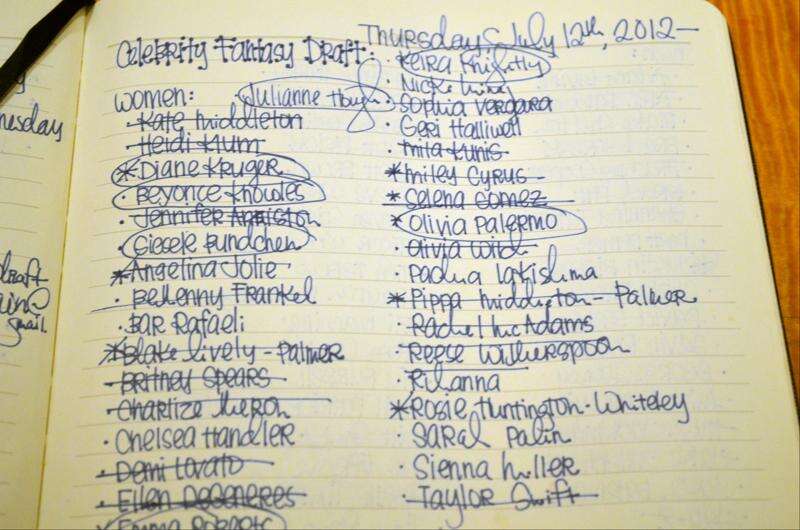 Thursday July 12th, 2012-
Celebrity Fantasy Draft:
women:
Julianne Hough
Kate Middleton
Heidi Klum
*Diane Kruger
Beyonce Knowles
Jennifer Aniston
Gisele Bundchen
*Angelina Jolie
Bethenny Frankel
Bar Rafaeli
*Blake Lively - Palmer
Britney Spears
Charlize Theron
Chelsea Handler
Demi Lovato
Ellen DeGeneres
Emma Roberts
Keira Knightly
Nicki Minaj
Sophia Vergara
Geri Halliwell
Mila Kunis
*Miley Cyrus
*Selena Gomez
*Olivia Palermo
Olivia Wilde
Padma Lakishma
*Pippa Middleton - Palmer
Rachel McAdams
Reese Witherspoon
Rihanna
*Rosie Huntington-Whiteley
Sarah Palin
Sienna Miller
Taylor Swift
draft
gmail